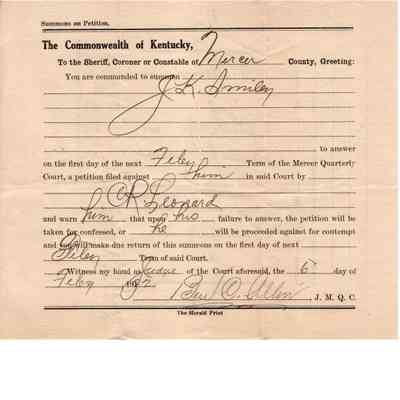 Summons on Petition.
The Commonwealth of Kentucky,
To the Sheriff, Coroner or Constable of Mercer County, Greeting:
You are commanded to summon
J. K. Smiley
to answer
on the first day of the next Feby Term of the Mercer Quarterly
Court, a petition filed against him in said Court by
C R Leonard
and warn him that upon his failure to answer, the petition will be
taken for confessed, or he will be proceeded against for contempt
and you will make due return of this summons on the first day of next
Feby Term of said Court.
Witness my hand as Judge of the Court aforesaid, the 6 day of
Feby 192
Ben C. Allin, J. M. Q. C.
The Herald Print